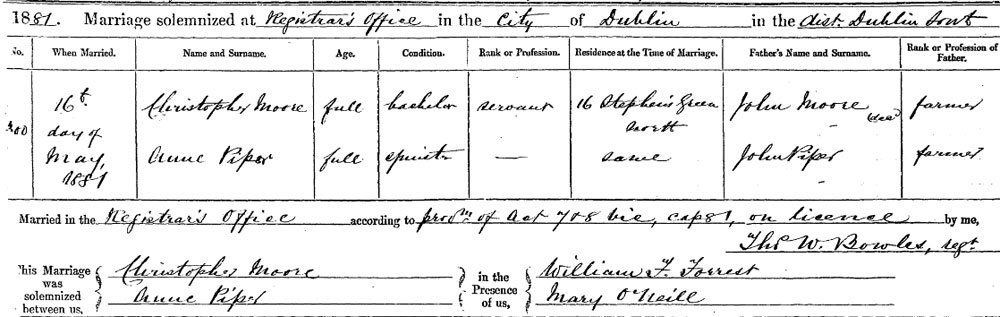 1881. Marriage solemnized at Registrar's Office in the City of Dublin in the dist. Dublin South
No. When Married. Name and Surname. Age. Condition. Rank or Profession. Residence at the Time of Marriage. Father's Name and Surname. Rank or Profession of Father.
16th Christopher Moore full bachelor servant 16 Stephen's Green John Moore (decd) farmer
day of north
May, Anne Piper full spinster — same John Piper farmer
1881
Married in the Registrar's Office according to provns of Act 7 & 8 vic, cap 81, on licence by me,
Thos W. Bowles, regr.
This Marriage was solemnized between us, Christopher Moore in the Presence of us, William F. Forrest
Anne Piper Mary O'Neill